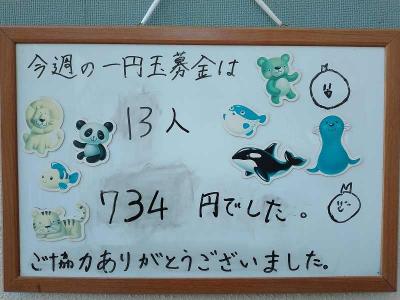 今週の一円玉募金は
13人
734 円でした。
ご協力ありがとうございました。